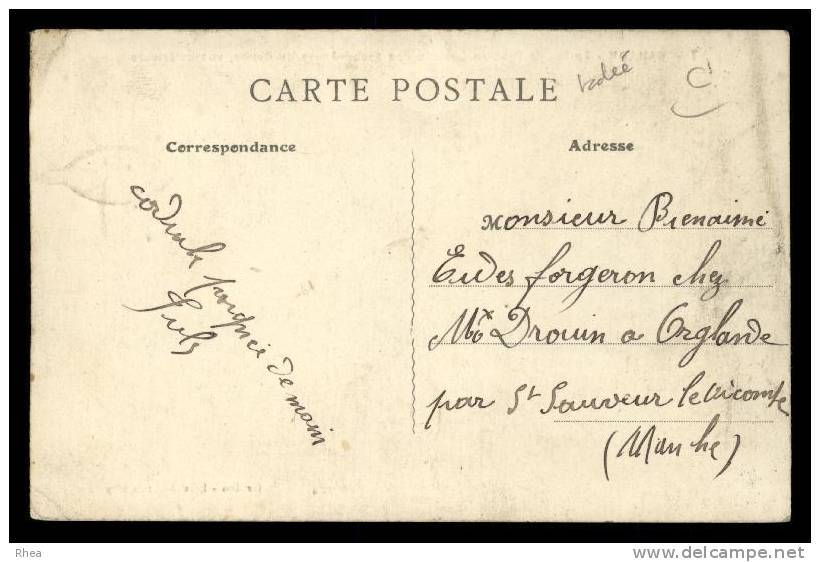 CARTE POSTALE
Correspondance
Adresse
cordiale poignée de main
Jules
Monsieur Bienaimé
Eudes forgeron chez
Drouin a Orglande
par St Sauveur le Vicomte
(Manche)
Rhea
www.delcampe.net